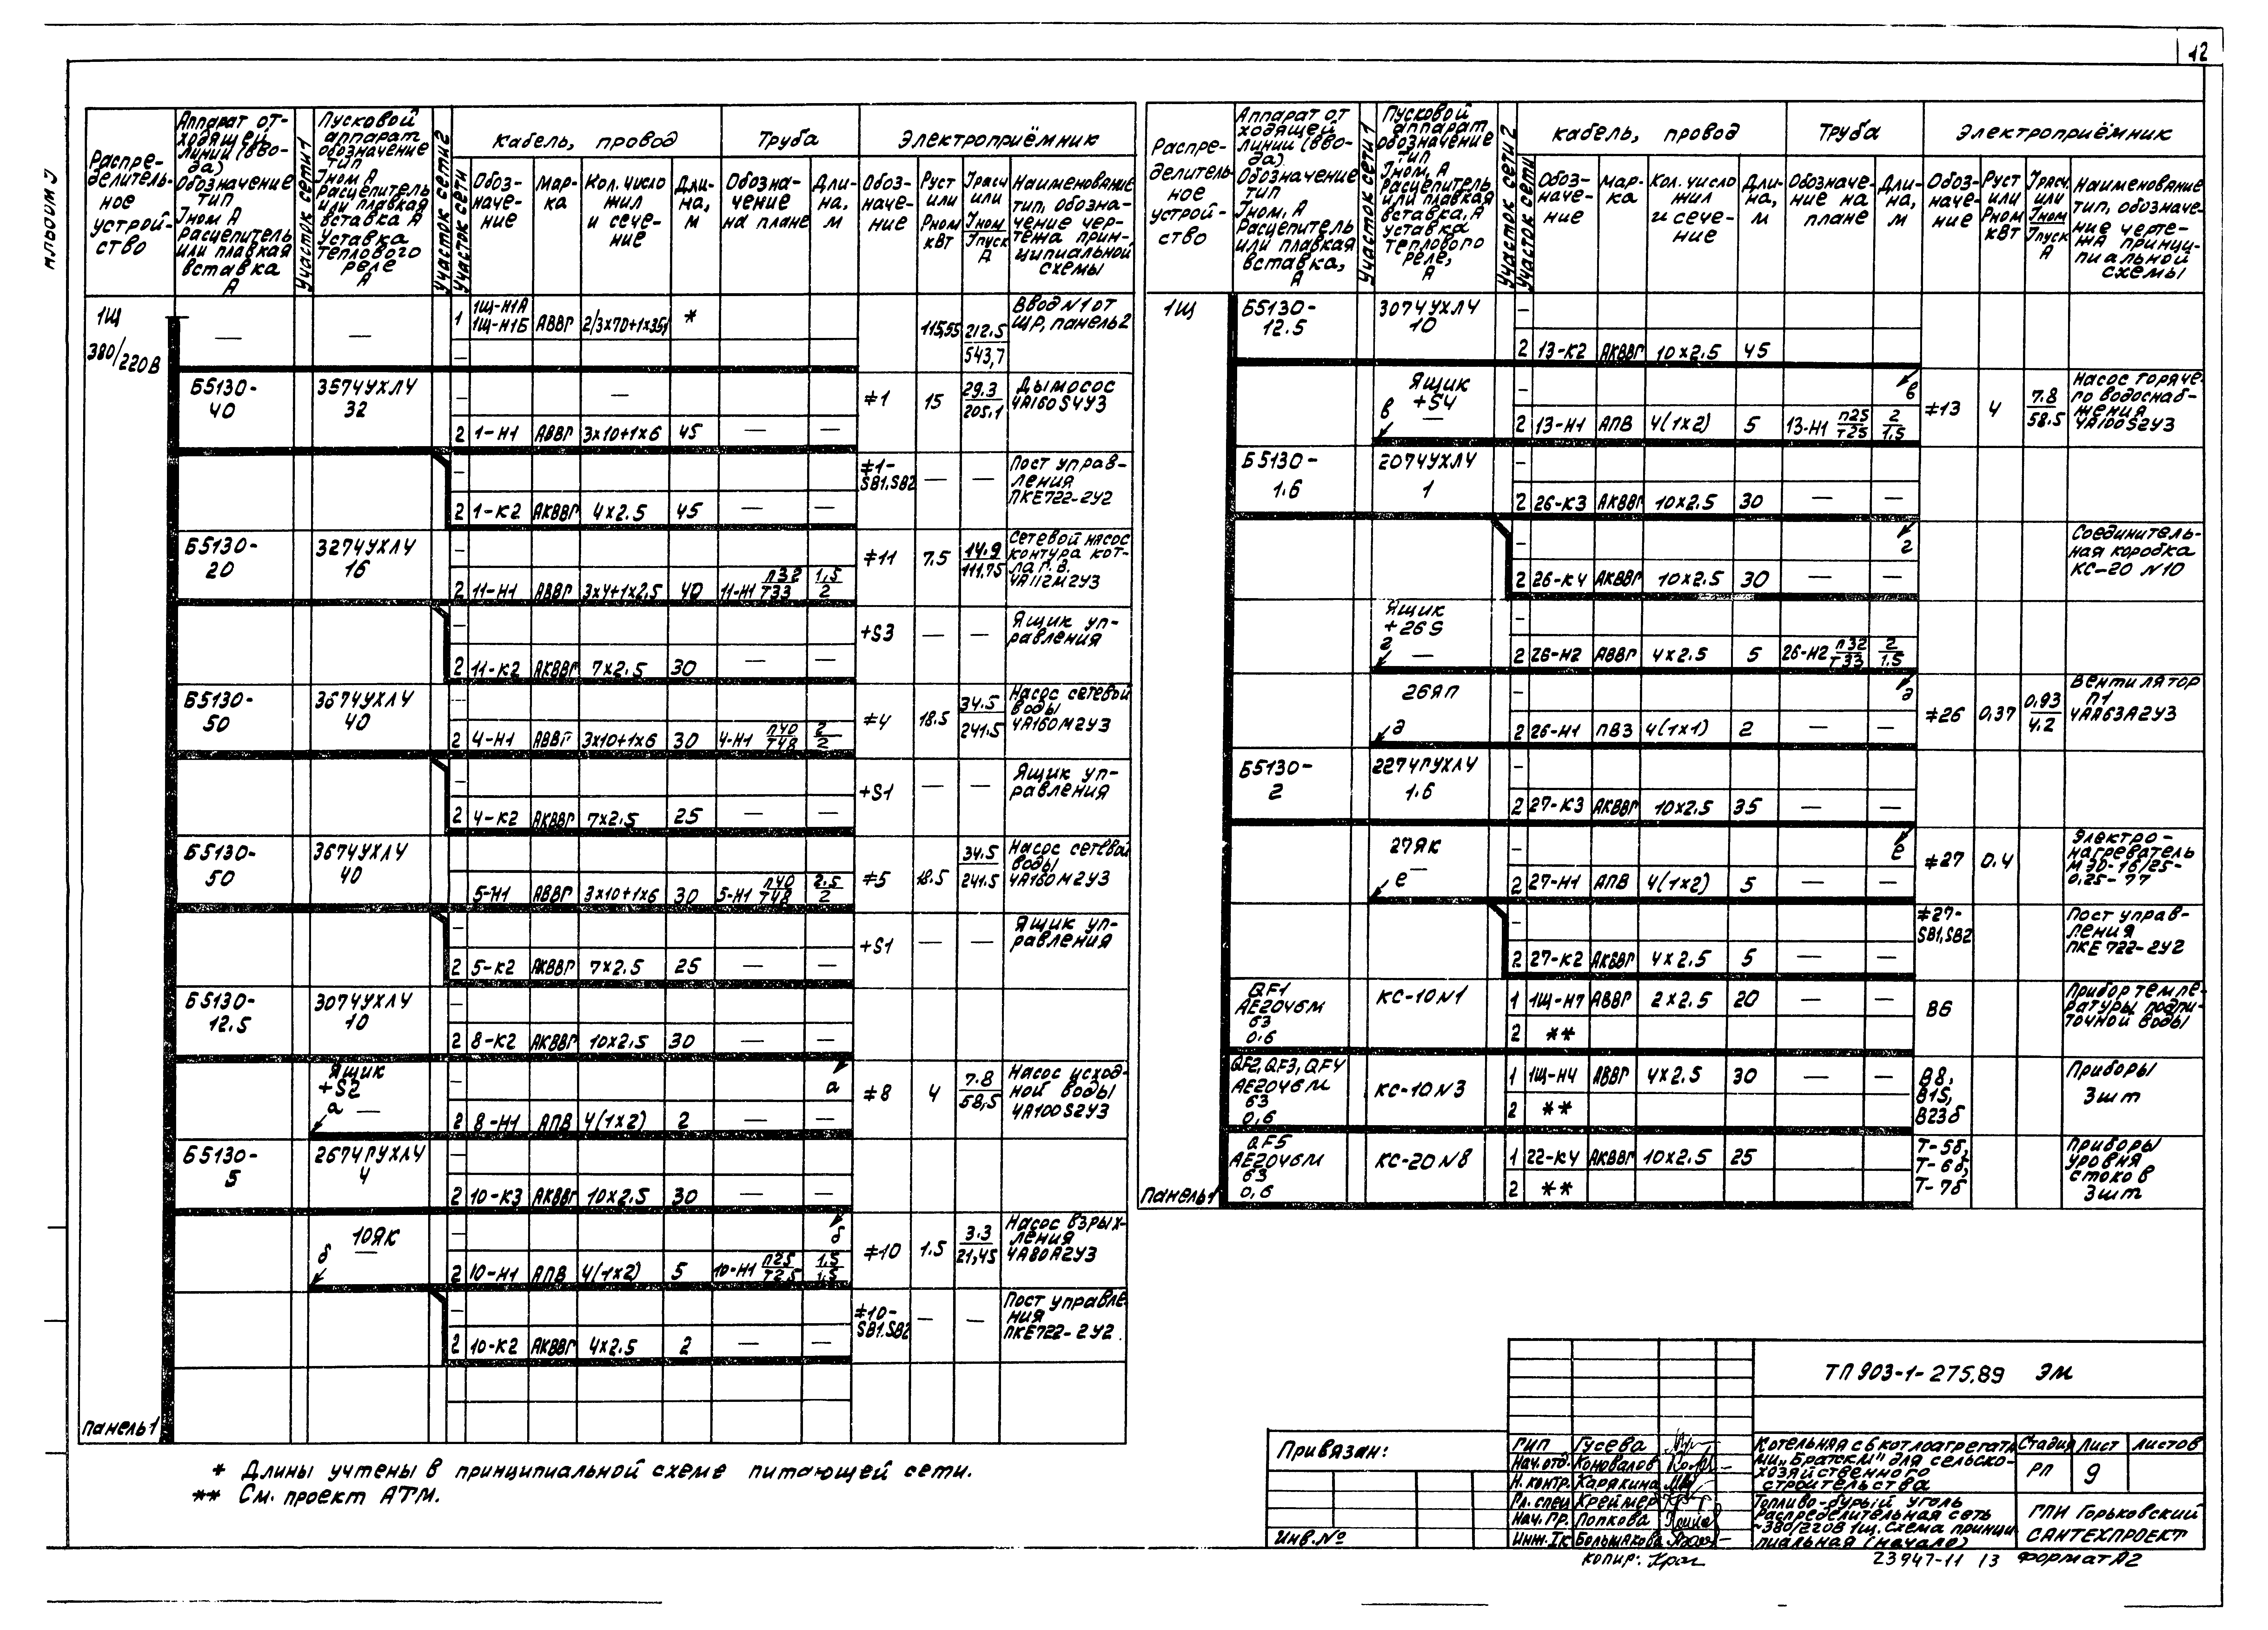 12
Альбом
Распре-
делитель-
ное
устрой-
ство
Аппарат от-
ходящей
линии (вво-
да)
Обозначение
тип
Iном А
Расцепитель
или плавкая
вставка
А
Участок сети 1
Пусковой
аппарат
обозначение
тип
Iном А
расцепитель
или плавкая
вставка А
Уставка
теплового
реле
А
Участок сети 2
Участок сети
Кабель, провод
Обоз-
наче-
ние
Мар-
ка
Кол. число
жил
и сече-
ние
Дли-
на,
м
Труба
Обозна-
чение
на плане
Дли-
на,
м
Электроприёмник
Обоз-
наче-
ние
Руст
или
Рном
кВт
Iрасч
или
Iном
Iпуск
А
Наименование
тип, обозна-
чение чер-
тежа прин-
ципиальной
схемы
1Щ
380/220В
— — 1 1Щ-Н1А
1Щ-Н1Б АВВГ 2/3х70+1х35/ * 115,55 212.5
543,7 Ввод N1 от
ЩР, панель 2
Б5130-
40 3574УХЛ4
32 2 1-Н1 АВВГ 3х10+1х6 45 — — ≠1 15 29.3
205.1 Дымосос
4А160S4У3
2 1-К2 АКВВГ 4х2.5 45 — — ≠1-
SB1.SB2 — — Пост управ-
ления
ПКЕ722-2У2
Б5130-
20 3274УХЛ4
16 2 11-Н1 АВВГ 3х4+1х2.5 40 11-Н1 П32
Т33 1.5
2 ≠11 7.5 14.9
111.75 Сетевой насос
контура кот-
ла г.в.
4А112М2У3
2 11-К2 АКВВГ 7х2.5 30 — — +S3 — — Ящик уп-
равления
Б5130-
50 3674УХЛ4
40 2 4-Н1 АВВГ 3х10+1х6 30 4-Н1 П40
Т48 2
2 ≠4 18.5 34.5
241.5 Насос сетевой
воды
4А160М2У3
2 4-К2 АКВВГ 7х2.5 25 — — +S1 — — Ящик уп-
равления
Б5130-
50 3674УХЛ4
40 5-Н1 АВВГ 3х10+1х6 30 5-Н1 П40
Т48 2.5
2 ≠5 18.5 34.5
241.5 Насос сетевой
воды
4А160М2У3
2 5-К2 АКВВГ 7х2.5 25 — — +S1 — — Ящик уп-
равления
Б5130-
12.5 3074УХЛ4
10 2 8-К2 АКВВГ 10х2.5 30 — —
Ящик
+S2
а — 2 8-Н1 АПВ 4(1х2) 2 — — а ≠8 4 7.8
58,5 Насос исход-
ной воды
4А100S2У3
Б5130-
5 2674ГУХЛ4
4 2 10-К3 АКВВГ 10х2.5 30 — —
10ЯК
б — 2 10-Н1 АПВ 4(1х2) 5 10-Н1 П25
Т25 1.5
1.5 б ≠10 1.5 3.3
21,45 Насос взрых-
ления
4А80А2У3
2 10-К2 АКВВГ 4х2.5 2 — — ≠10-
SB1.SB2 — — Пост управле-
ния
ПКЕ722-2У2
Панель 1
* Длины учтены в принципиальной схеме питающей сети.
** См. проект АТМ.
Распре-
делитель
ное
устрой-
ство
Аппарат от
ходящей
линии (вво-
да)
Обозначение
тип
Iном, А
Расцепитель
или плавкая
вставка,
А
Участок сети 1
Пусковой
аппарат
обозначение
тип
Iном, А
Расцепитель
или плавкая
вставка, А
уставка
теплового
реле,
А
Участок сети 2
Участок сети
кабель, провод
Обоз-
наче-
ние
Мар-
ка
Кол. число
жил
и сече-
ние
Дли-
на,
м
Труба
Обозначе-
ние на
плане
Дли-
на,
м
Электроприёмник
Обоз-
наче-
ние
Руст
или
Рном
кВт
Iрасч
или
Iном
Iпуск
А
Наименование
тип, обозначе-
ние черте-
жа принци-
пиальной
схемы
1Щ
Б5130-
12.5 3074УХЛ4
10 2 13-К2 АКВВГ 10х2.5 45
Ящик
+S4
в — 2 13-Н1 АПВ 4(1х2) 5 13-Н1 П25
Т25 2
1.5 в ≠13 4 7.8
58.5 Насос горяче-
го водоснаб-
жения
4А100S2У3
Б5130-
1.6 2074УХЛ4
1 2 26-К3 АКВВГ 10х2.5 30 — —
2 26-К4 АКВВГ 10х2.5 30 — — г Соединитель-
ная коробка
КС-20 N10
Ящик
+26S
г — 2 26-Н2 АВВГ 4х2.5 5 26-Н2 П32
Т33 2
1.5
26ЯП
д 2 26-Н1 ПВ3 4(1х1) 2 — — д ≠26 0,37 0,93
4.2 Вентилятор
П1
4АА63А2У3
Б5130-
2 2274ГУХЛ4
1.6 2 27-К3 АКВВГ 10х2.5 35 — —
27ЯК
е — 2 27-Н1 АПВ 4(1х2) 5 — — е ≠27 0,4 Электро-
нагреватель
МЭО-16/25-
0,25-77
2 27-К2 АКВВГ 4х2.5 5 — — ≠27-
SB1,SB2 Пост управ-
ления
ПКЕ 722-2У2
QF1
АЕ2046М
63
0.6 КС-10N1 1 1Щ-Н7 АВВГ 2х2.5 20 — —
2 ** В6 Прибор темпе-
ратуры подпи-
точной воды
QF2, QF3, QF4
АЕ2046М
63
0,6 КС-10N3 1 1Щ-Н4 АВВГ 4х2.5 30 — —
2 ** В8,
В15,
В23б Приборы
3шт
QF5
АЕ2046М
63
0,6 КС-20N8 1 22-К4 АКВВГ 10х2.5 25
2 ** Т-5б,
Т-6б,
Т-7б Приборы
уровня
стоков
3шт
Панель 1
ТП 903-1-275.89 ЭМ
Привязан:
Инв.№
ГИП Гусева
Нач.отд. Коновалов
Н.контр. Карякина
Гл.спец Креймер
Нач.гр. Попкова
Инж.Iк Большакова
Котельная с 6 котлоагрегата
ми „Братск М" для сельско-
хозяйственного
строительства
Стадия Лист Листов
РП 9
Топливо-бурый уголь
Распределительная сеть
~380/220В 1щ. Схема принци
пиальная (начало)
ГПИ Горьковский
САНТЕХПРОЕКТ
Копир.
23947-11 13 Формат А2